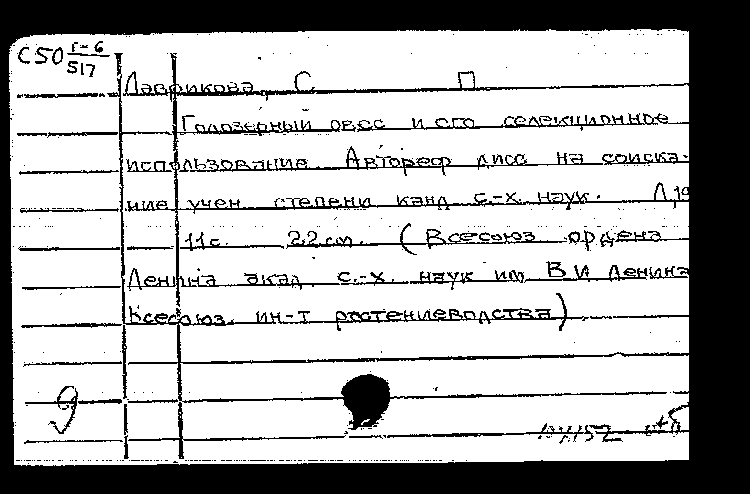 С50 г-6
517
Лаврикова, С П
Голозерный овес и его селекционное
использование. Автореф дисс на соиска-
ние учен степени канд с.-х. наук. Л, 19
11с. 22 см. (Всесоюз ордена
Ленина акад. с.-х. наук им В И Ленина
Всесоюз. ин-т растениеводства)
9